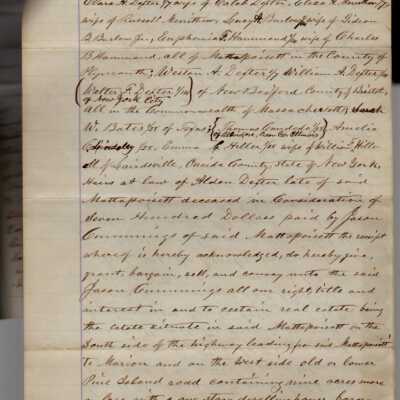 Clara A. Dexter wife of Caleb Dexter,
wife of Russell Lucy A. Barlow wife of Gideon
B Barlow Jnr, Euphemia F. Hammond wife of Charles
B Hammond, all of Mattapoisett in the County of
Plymouth; Weston A. Dexter William A. Dexter
Walter F. Dexter of New Bedford County of Bristol,
of New York City
all in the Commonwealth of Massachusetts, Sarah
W. Bates of Texas; Amelia
Emma Hiller wife of William Hiller
all of Oneida County, State of New York,
Heirs at law of Alden Dexter late of said
Mattapoisett deceased in Consideration of
Seven Hundred Dollars paid by Jason
Cummings of said Mattapoisett the receipt
whereof is hereby acknowledged, do hereby give,
grant, bargain, sell, and convey unto the said
Jason Cummings all our right, title and
interest in and to certain real estate being
the Estate situate in said Mattapoisett on the
South side of the highway leading from said Mattapoisett
to Marion and on the West side old or lower
Pine Island road containing nine acres more
or less with a one story dwelling house barn